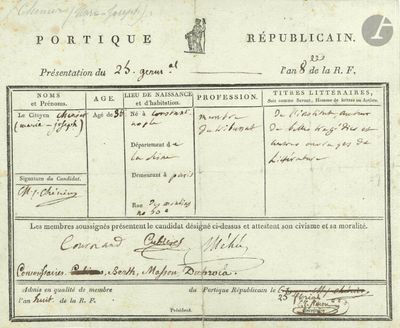 Chénier (Marie-Joseph).
PORTIQUE RÉPUBLICAIN.
Présentation du 25 germinal
l'an 8 de la R. F.
NOMS et Prénoms.
AGE.
LIEU DE NAISSANCE et d'habitation.
PROFESSION.
TITRES LITTERAIRES,
Soit comme Savant, Homme de lettres ou Artiste.
Le Citoyen Chénier
(marie-joseph)
Agé de 36
Né à Constanti-
nople
Département de
la seine
Demeurant à paris
Rue
no
membre
du tribunat
de l'institut auteur
de belles tragédies et
autres ouvrages de
Littérature
Signature du Candidat.
M. J. Chénier
Les membres soussignés présentent le candidat désigné ci-dessus et attestent son civisme et sa moralité.
Cournand Cubieres Méhée
Commissaires. Berth, Masson
Admis en qualité de membre du Portique Républicain le
l'an huit de la R. F.
Président.